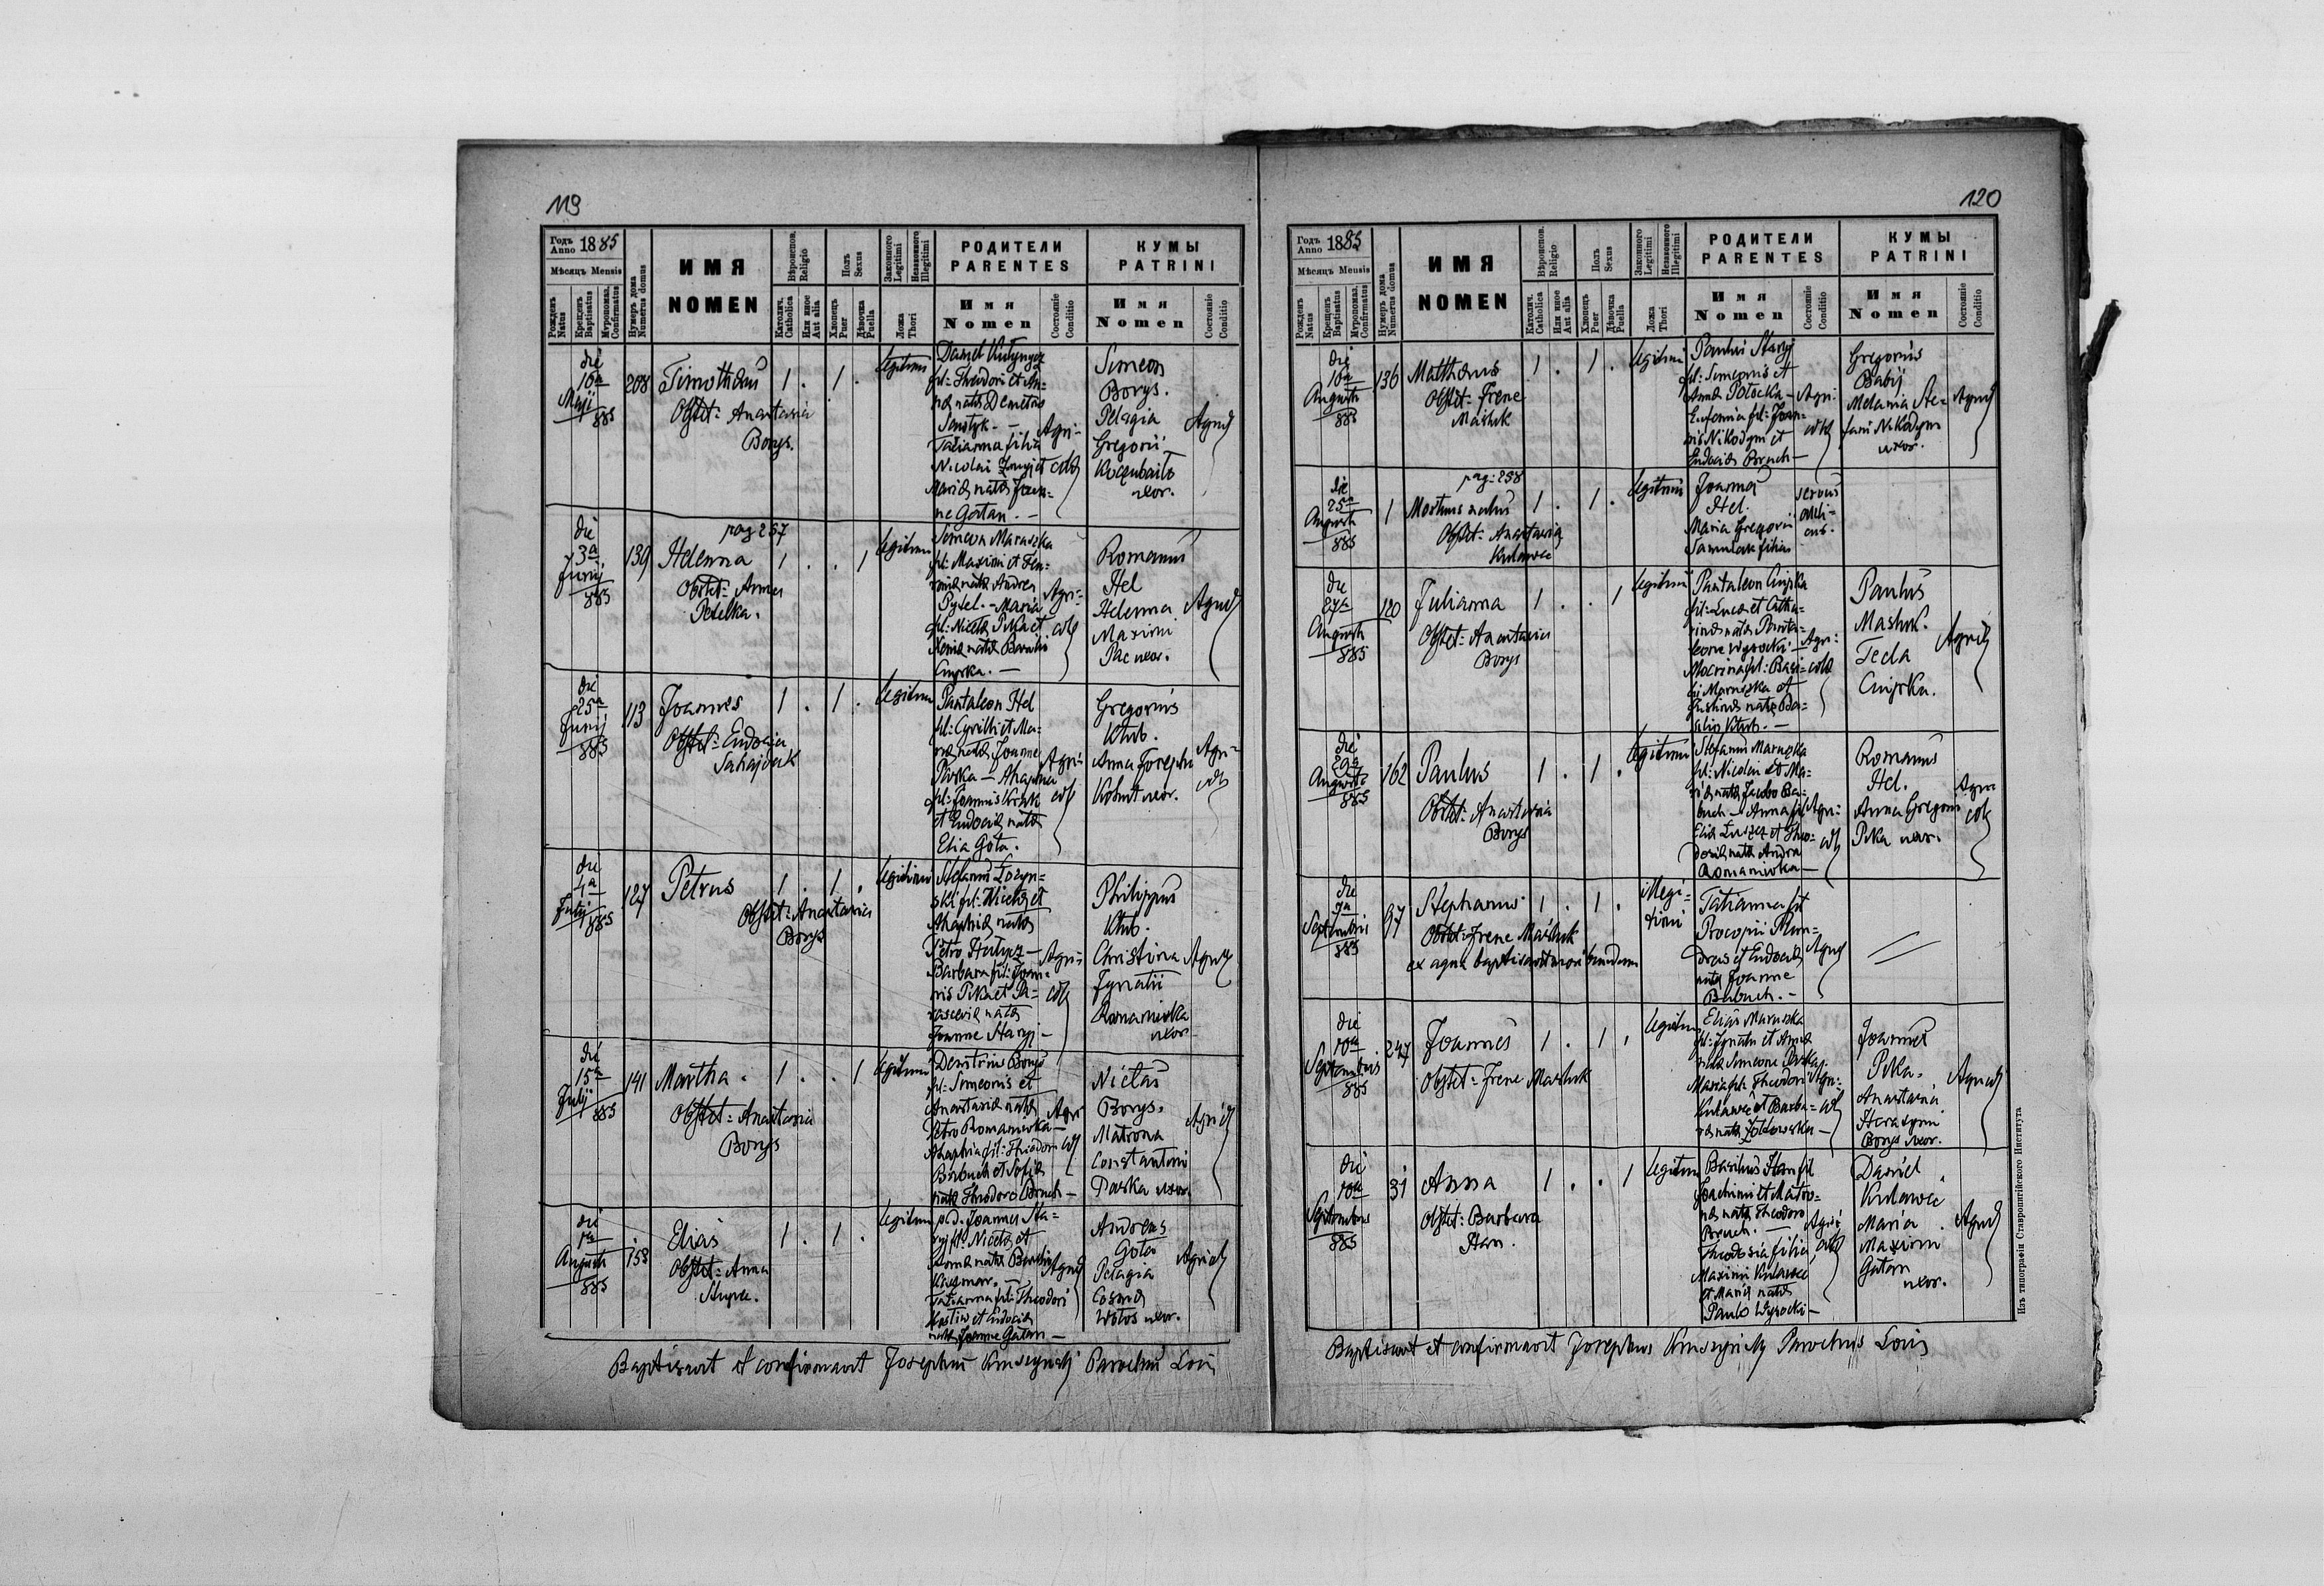 119
Годъ Anno 1885
Мѣсяцъ Mensis
Рожденъ Natus
Крещенъ Baptisatus
Муропомаз. Confirmatus
Нумеръ дома Numerus domus
ИМЯ
NOMEN
Вѣроиспов. Religio
Католич. Catholica
Или иное Aut alia
Полъ Sexus
Хлопецъ Puer
Дѣвочка Puella
Законного Legitimi
Незаконного Illegitimi
Ложа Thori
РОДИТЕЛИ
PARENTES
Имя
Nomen
Состояніе Conditio
КУМЫ
PATRINI
Имя
Nomen
Состояніе Conditio
die
16a
Maji
885
208
Timotheus
Obstet: Anastasia
Borys.
1 . 1 .
legitimi
Daniel
fil: Theodori et An-
na nata Demetrio
Tatianna filia
Nicolai
Maria nata Joan-
ne Gatan. —
Agri-
colae
Simeon
Borys.
Pelagia
Gregorii
uxor.
Agricolae
die
3a
Junij
885
139
pag 257
Helenna
Obstet: Anna
Petelka.
1 . . 1
legitimi
Simeon Maruszka
fil: Maximi et
nata Andrea
Pytel. - Maria
fil: Nicetae Pika et
Xenia nata Basilio
Cnyrka. —
Agri-
colae
Romanus
Hel
Helenna
Maximi
Pac uxor.
Agricolae
die
25a
Junij
885
113
Joannes
Obstet: Eudocia
Sahajdak
1 . 1 .
legitimi
Pantaleon Hel
fil: Cyrilli et Ma-
ria nata Joanne
fil: Joannis
et Eudocia nata
Elia Gota.
Agri-
colae
Gregorius
Klub.
Anna Josephi
uxor.
Agri-
colae
die
4a
Julij
885
127
Petrus
Obstet: Anastasia
Borys
1 . 1 .
legitimi
Stefanus Lozyn-
ski fil: Nicetae et
Ahaphia nata
Petro
Barbara fil: Joan-
nis Pika et Pa-
rascevia nata
Joanne Staryj —
Agri-
colae
Philippus
Klub.
Christina
Ignatii
Romaniwka
uxor
Agricolae
die
15a
Julij
885
141
Martha .
Obstet: Anastasia
Borys
1 . . 1
legitimi
Demetrius Borys
fil: Simeonis et
Anastasia nata
Petro Romaniwka —
Ahaphia fil: Theodori
Babuch et Sofia
nata Theodoro Bruch —
Agri
colae
Nicetas
Borys.
Matrona
Constantini
Paska uxor.
Agricolae
die
1a
Augusti
885
153
Elias
Obstet: Anna
1 . 1 .
legitimi
Joannes Sta-
ryj fil: Nicetae et
nata Basilio
Tatianna fil: Theodori
Kostiw et Eudocia
nata Joanne Gatan —
Agricolae
Andreas
Gota
Pelagia
Cosmae
Wotos uxor.
Agricolae
Baptisavit et confirmavit Josephus Parochus Loci
120
Годъ Anno 1885
Мѣсяцъ Mensis
Рожденъ Natus
Крещенъ Baptisatus
Муропомаз. Confirmatus
Нумеръ дома Numerus domus
ИМЯ
NOMEN
Вѣроиспов. Religio
Католич. Catholica
Или иное Aut alia
Полъ Sexus
Хлопецъ Puer
Дѣвочка Puella
Законного Legitimi
Незаконного Illegitimi
Ложа Thori
РОДИТЕЛИ
PARENTES
Имя
Nomen
Состояніе Conditio
КУМЫ
PATRINI
Имя
Nomen
Состояніе Conditio
die
10a
Augusti
885
136
Mattheus
Obstet: Irene
Mastuk
1 . 1 .
legitimi
Paulus Staryj
fil: Simeonis et
Anna Potocka —
Eufemia fil: Joan-
nis Nikodym et
Eudocia Bruch —
Agri-
colae
Gregorius
Babij
Melania Ste-
fani Nikodym
uxor.
Agricolae
die
25a
Augusti
885
1
pag: 258
Mortuus natus
Obstet: Anastasia
Kulawec
1 . 1 .
legitimi
Joannes
Hel.
Maria Gregorii
filia
servus
die
27a
Augusti
885
120
Julianna
Obstet: Anastasia
Borys
1 . . 1
legitimi
Pantaleon Cnyrka
fil: Lucae et Catha-
rina nata Panta-
leone Wysocki —
Macrina fil: Basi-
lii Maruszka et
Justina nata Ba-
silio Klub. —
Agri-
colae
Paulus
Mastuk.
Tecla
Cnyrka.
Agricolae
die
29a
Augusti
885
162
Paulus
Obstet: Anastasia
Borys
1 . 1 .
legitimi
Stefanus Maruszka
fil: Nicolai et Ma-
ria nata Jacobo Ba-
buch — Anna fil
Eliae et Theo-
dosia nata Andrea
Romaniwka —
Agri-
colae
Romanus
Hel.
Anna Gregorii
Pika uxor.
Agri
colae
die
7a
Septembris
885
97
Stephanus
Obstet: Irene Mastuk
ex aqua baptisavit
1 . 1 .
illegi-
timi
Tatianna fil
Procopii
et Eudocia
nata Joanne
Babuch. —
Agricolae
die
10a
Septembris
885
247
Joannes
Obstet: Irene Mastuk
1 . 1 .
legitimi
Elias Maruszka
fil: Ignatii et Anna
nata Simeone
Maria fil: Theodori
Kulawec et Barba-
ra nata
Agri-
colae
Joannes
Pika.
Anastasia
Borys uxor.
Agricolae
die
10a
Septembris
885
31
Anna
Obstet: Barbara
Stan.
1 . . 1
legitimi
Basilius Stan fil
Joachimi et Matro-
na nata Theodoro
Bruch. —
Theodosia filia
Maximi Kulawec
et Maria nata
Paulo Wysocki —
Agri-
colae
Daniel
Kulawec
Maria
Maximi
Gatan
uxor.
Agricolae
Baptisavit et confirmavit Josephus Parochus Loci
Изъ типографіи Ставропигійского Института